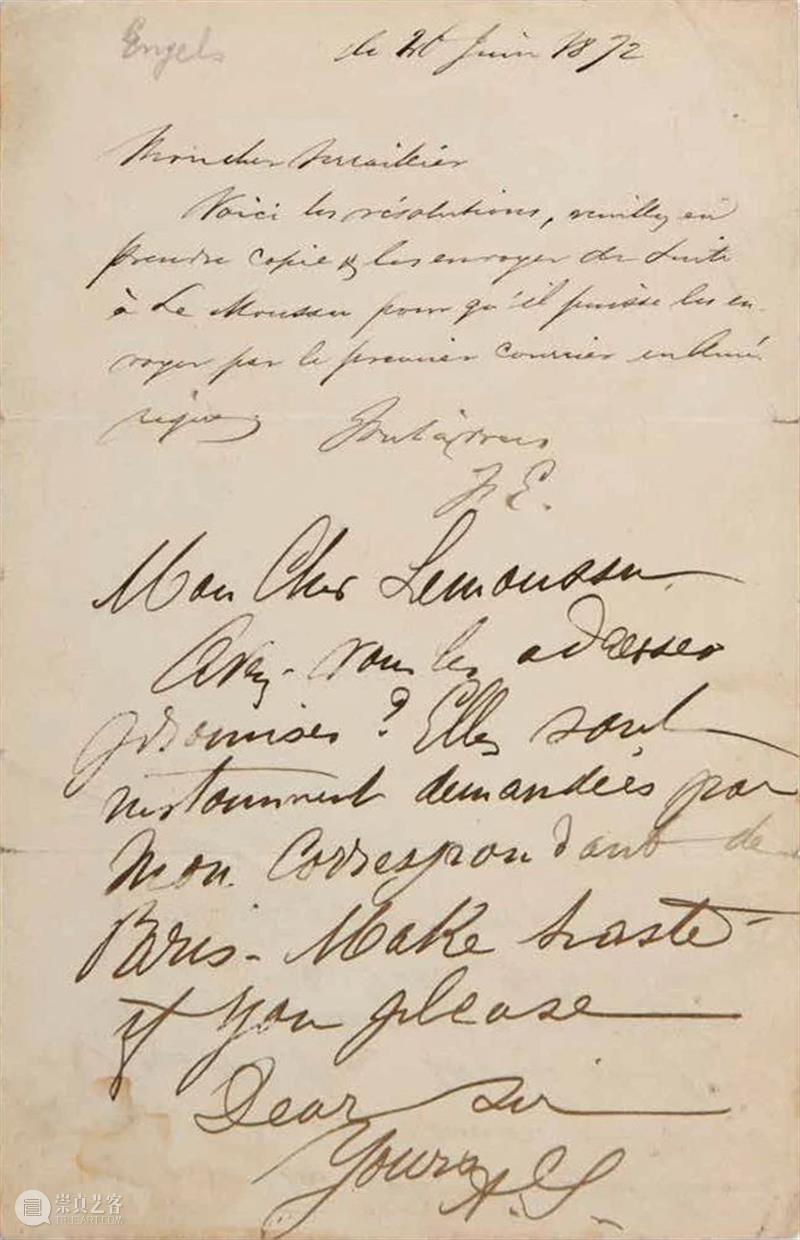 Engels
le Juin 1872
Mon cher Serraillier
Voici les résolutions, veuillez en
prendre copie & les envoyer de suite
à Le Moussu pour qu'il puisse les en-
voyer par le premier courrier en Amé-
rique
Tout à vous
F. E.
Mon Cher Lemoussu
Avez-vous les adresses
promises? Elles sont
demandées par
mon Correspondant de
Paris - Make haste
if you please
Dear Sir
Yours A. S.
崇真艺客
TRUEART.COM